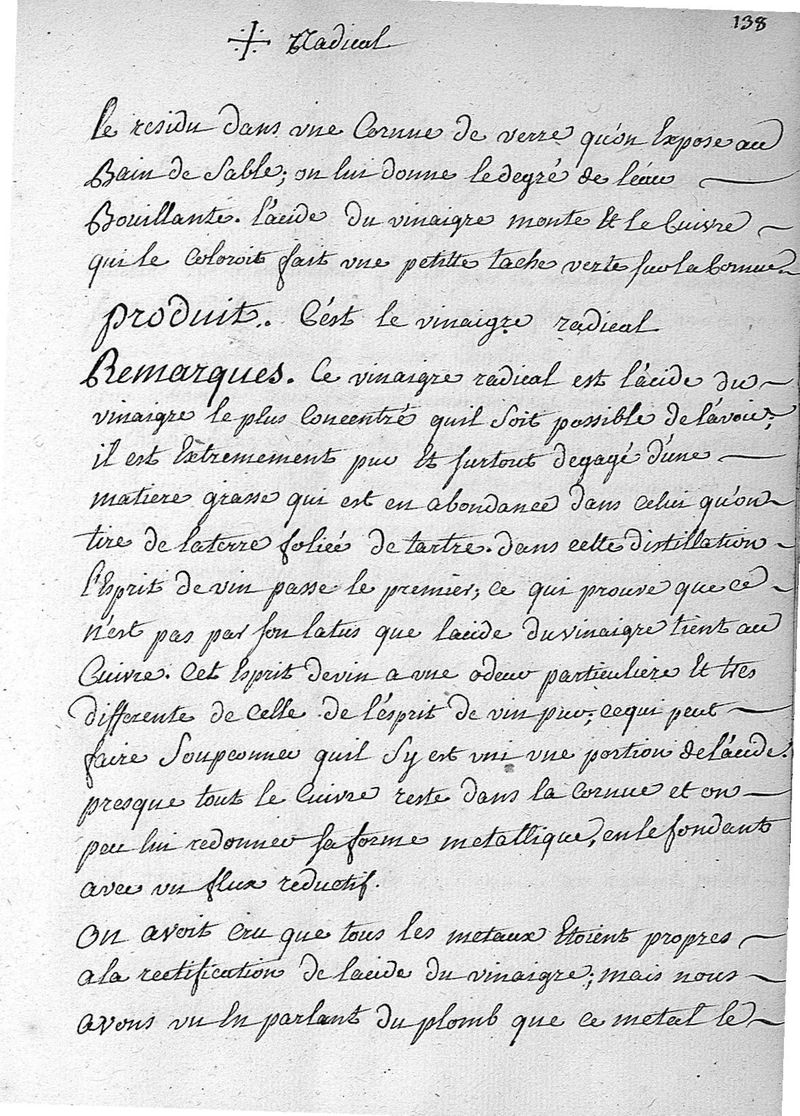 138
Radical
le residu dans vne Cornue de verre qu'on Expose au
Bain de Sable; on lui donne le degré de l'eau
Bouillante. l'acide du vinaigre monte Et le Cuivre
qui le Coloroit fait vne petitte tache verte sur la Cornue.
produit.. C'est le vinaigre radical
Remarques. Ce vinaigre radical est l'acide du
vinaigre le plus Concentré quil Soit possible de l'avoir;
il est Extremement pur Et surtout degagé d'une
matiere grasse qui est en abondance dans celui qu'on
tire de laterre foliée de tartre. dans cette distillation
l'Esprit de vin passe le premier; ce qui prouve que ce
n'est pas par son latus que lacide du vinaigre tient au
Cuivre. Cet Esprit devin a vne odeur particuliere Et tres
differente de Celle de l'esprit de vin pur; cequi peut
faire Soupconner quil Sy est vni vne portion de l'acide.
presque tout le Cuivre reste dans la cornue et on
peu lui redonner sa forme metallique, en le fondant
avec vn flux reductif.
On avoit cru que tous les metaux Etoient propres
ala rectification de lacide du vinaigre; mais nous
avons vu En parlant du plomb que ce metal le